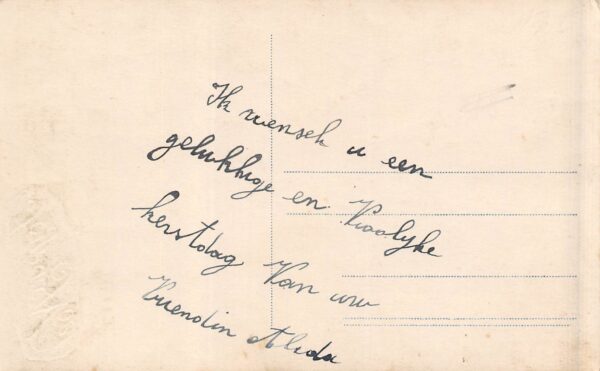 Ik wensch u een
gelukkige en Vroolyke
kerstdag Van uw
Vriendin Alida